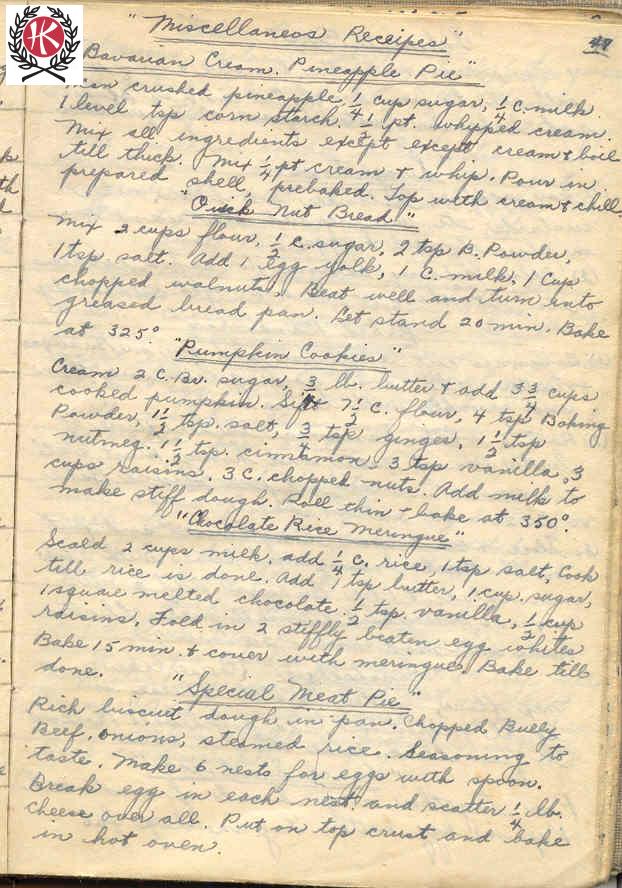 HK
47
"Miscellaneos Receipes"
Bavarian Cream. Pineapple Pie"
crushed pineapple, 1/4 cup sugar, 1/4 C. milk.
1 level tsp corn starch. 1/2 pt. whypped cream.
Mix all ingredients except except cream & boil
till thick. Mix 1/4 pt cream & whip. Pour in
prepared shell, prebaked. Top with cream & chill.
"Quick Nut Bread"
Mix 2 cups flour, 1/2 C. sugar, 2 tsp B. Powder,
1 tsp. salt. Add 1 egg yolk, 1 C. milk, 1 Cup
chopped walnuts. Beat well and turn into
greased bread pan. Let stand 20 min. Bake
at 325°.
"Pumpkin Cookies"
Cream 2 C. Br. sugar, 3/4 lb. butter & add 3 3/4 cups
cooked pumpkin. Sift 7 1/2 C. flour, 4 tsp Baking
Powder, 1 1/2 tsp. salt, 3/4 tsp ginger, 1 1/2 tsp
nutmeg. 1 1/2 tsp. cinnamon. 3 tsp vanilla, 3
cups raisins. 3 C. chopped nuts. Add milk to
make stiff dough. Roll thin & bake at 350°.
"Chocolate Rice Meringue"
Scald 2 cups milk, add 1/4 C. rice, 1 tsp salt, Cook
till rice is done. Add 1 tsp butter, 1 cup sugar,
1 square melted chocolate. 1/2 tsp vanilla, 1/2 cup
raisins. Fold in 2 stiffly beaten egg whites
Bake 15 min. & cover with meringue. Bake till
done.
"Special Meat Pie"
Rich biscuit dough in pan. Chopped Bully
Beef, onions, steamed rice. Seasoning to
taste. Make 6 nests for eggs with spoon.
Break egg in each nest and scatter 1/4 lb.
cheese over all. Put on top crust and bake
in hot oven.